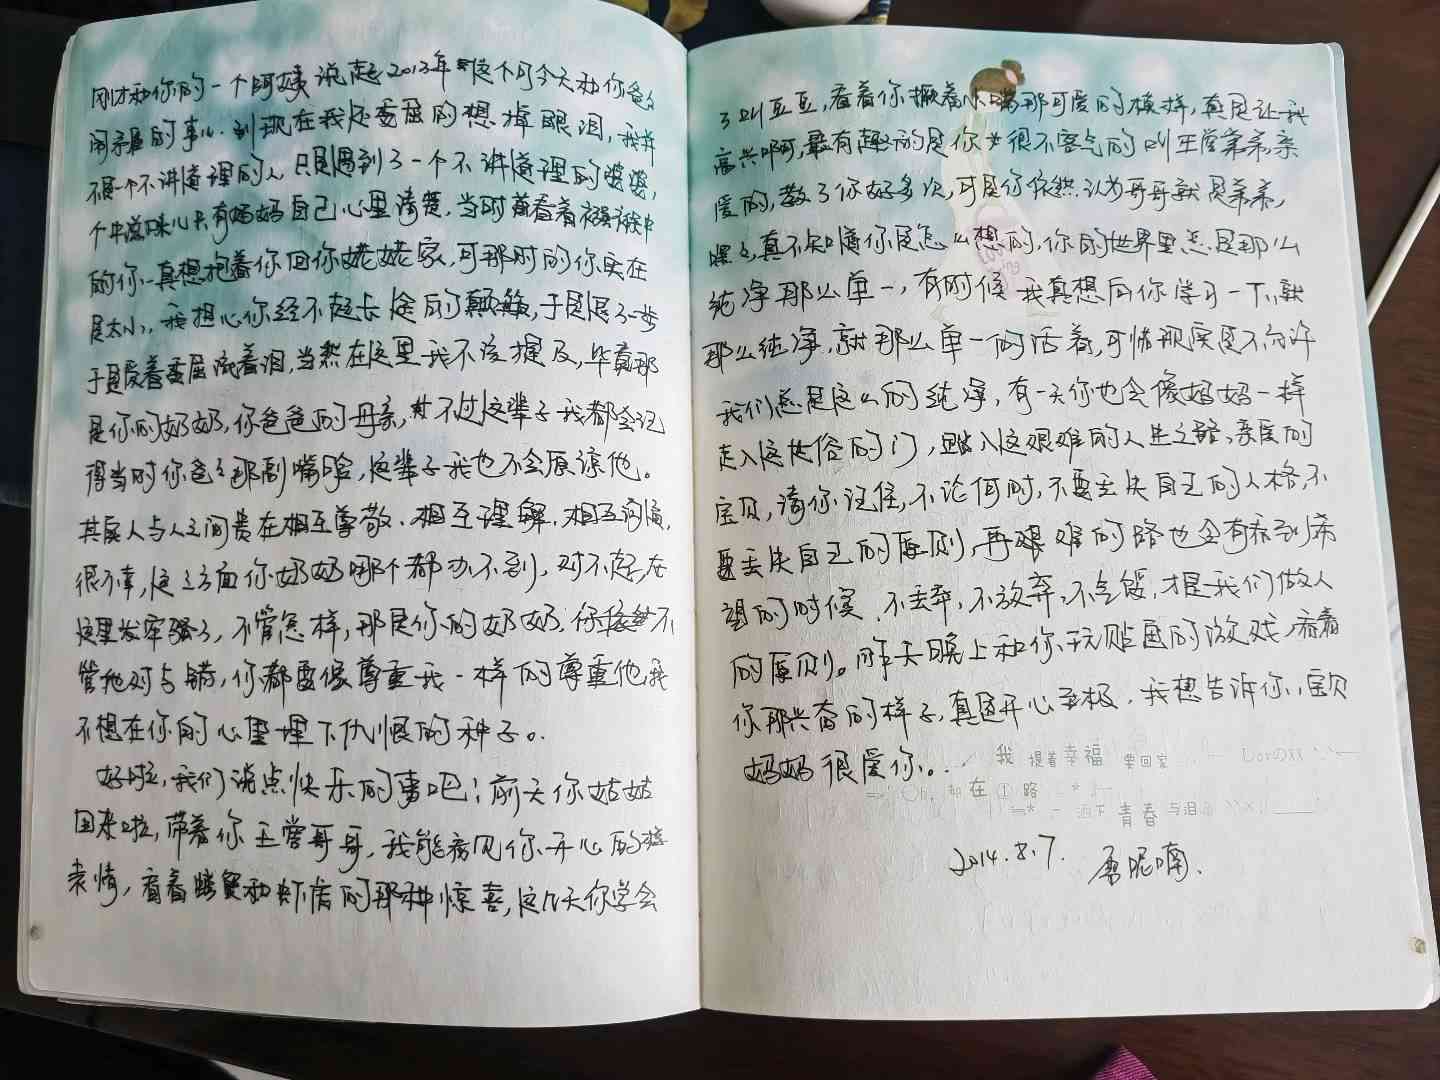 刚才和你的一个阿姨说起2013年这个时今天和你爸爸
闹矛盾的事心,到现在我还委屈的想掉眼泪,我并
不是一个不讲道理的人,只是遇到了一个不讲道理的婆婆,
个中滋味只有妈妈自己心里清楚,当时看着襁褓中
的你,真想抱着你回你姥姥家,可那时的你实在
是太小,我担心你经不起长途的颠簸,于是退了一步
于是爱着委屈流着泪,当然在这里我不该提及,毕竟那
是你的奶奶,你爸爸的母亲,不过这辈子我都会记
得当时你爸爸那副嘴脸,这辈子我也不会原谅他。
其实人与人之间贵在相互尊敬,相互理解,相互
很不幸,这方面你奶奶哪个都办不到,对不起,在
这里发牢骚了,不管怎样,那是你的奶奶,不
管她对与错,你都要像尊重我一样的尊重他,我
不想在你的心里埋下仇恨的种子。
好啦,我们说点快乐的事吧;前天你姑姑
回来啦,带着你王营哥哥,我能看见你开心的
表情,看着螃蟹和虾后的那种惊喜,这几天你学会
了叫豆豆,看着你撅着小嘴那可爱的模样,真是让我
高兴啊,最有趣的是你很不客气的叫王营弟弟,亲
爱的,教了你好多次,可是你依然认为哥哥就是弟弟,
嘿嘿,真不知道你是怎么想的,你的世界里总是那么
纯净那么单一,有时候我真想向你学习一下,就
那么纯净,就那么单一的活着,可惜现实是不允许
我们总是这么的纯净,有一天你也会像妈妈一样
走入这世俗的门,踏入这艰难的人生之路,亲爱的
宝贝,请你记住,不论何时,不要丢失自己的人格,不
要丢失自己的原则,再艰难的路也会有看到希
望的时候,不丢弃,不放弃,不气馁,才是我们做人
的原则。昨天晚上和你玩贴画的游戏,看着
你那兴奋的样子,真是开心至极,我想告诉你,宝贝
妈妈很爱你。
我 提着幸福 带回家
在 ① 路
洒下 青春 与泪
2014.8.7.